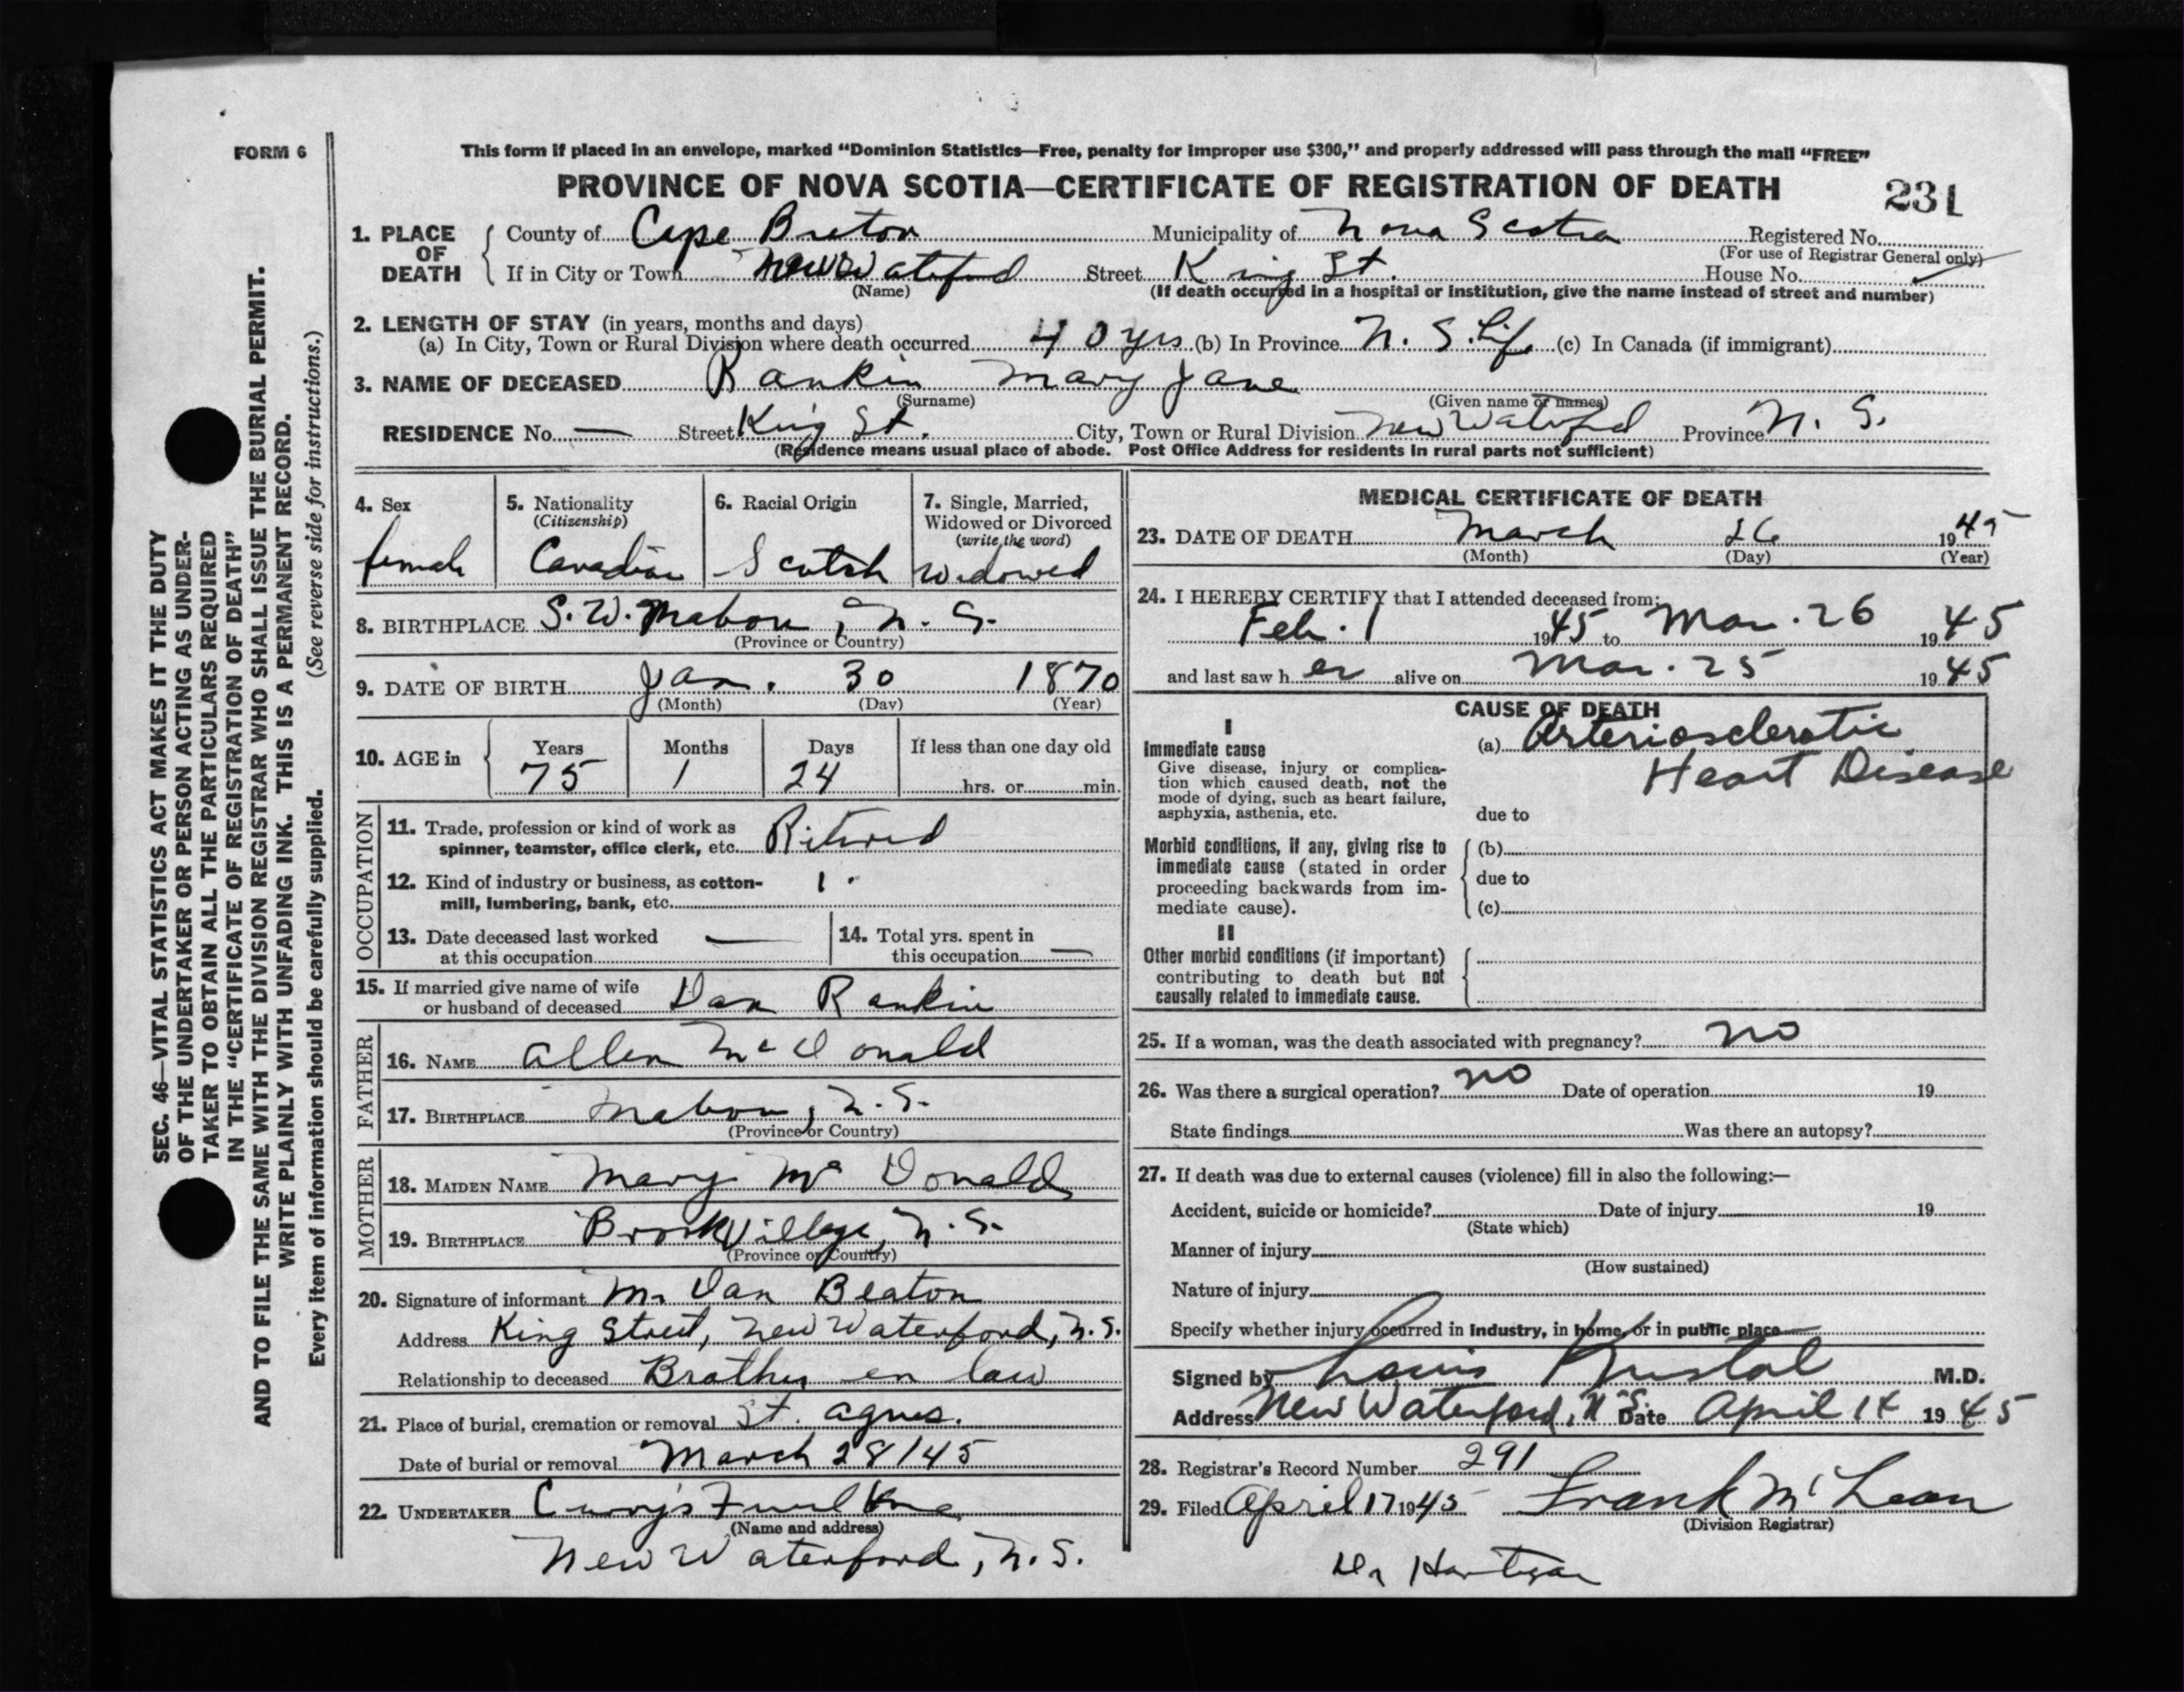 FORM 6
This form if placed in an envelope, marked “Dominion Statistics—Free, penalty for improper use $300,” and properly addressed will pass through the mail “FREE”
PROVINCE OF NOVA SCOTIA—CERTIFICATE OF REGISTRATION OF DEATH
231
1. PLACE OF DEATH
County of Cape Breton Municipality of Nova Scotia Registered No.
(For use of Registrar General only)
If in City or Town New Waterford Street King St. House No.
(Name) (If death occurred in a hospital or institution, give the name instead of street and number)
2. LENGTH OF STAY (in years, months and days)
(a) In City, Town or Rural Division where death occurred 40 yrs (b) In Province N. S. Life (c) In Canada (if immigrant)
3. NAME OF DECEASED Rankin Mary Jane
(Surname) (Given name or names)
RESIDENCE No. — Street King St. City, Town or Rural Division New Waterford Province N. S.
(Residence means usual place of abode. Post Office Address for residents in rural parts not sufficient)
4. Sex
female
5. Nationality
(Citizenship)
Canadian
6. Racial Origin
Scotch
7. Single, Married,
Widowed or Divorced
(write the word)
Widowed
8. BIRTHPLACE S. W. Mabou, N. S.
(Province or Country)
9. DATE OF BIRTH Jan. 30 1870
(Month) (Day) (Year)
10. AGE in
Years Months Days If less than one day old
75 1 24 hrs. or min.
OCCUPATION
11. Trade, profession or kind of work as
spinner, teamster, office clerk, etc. Retired
12. Kind of industry or business, as cotton-
mill, lumbering, bank, etc.
13. Date deceased last worked
at this occupation —
14. Total yrs. spent in
this occupation —
15. If married give name of wife
or husband of deceased Dan Rankin
FATHER
16. NAME Allen McDonald
17. BIRTHPLACE Mabou, N. S.
(Province or Country)
MOTHER
18. MAIDEN NAME Mary McDonald
19. BIRTHPLACE Brook Village, N. S.
(Province or Country)
20. Signature of informant Mr Dan Beaton
Address King Street, New Waterford, N. S.
Relationship to deceased Brother en law
21. Place of burial, cremation or removal St. Agnes.
Date of burial or removal March 28/45
22. UNDERTAKER Curry's
(Name and address)
New Waterford, N. S.
MEDICAL CERTIFICATE OF DEATH
23. DATE OF DEATH March 26 1945
(Month) (Day) (Year)
24. I HEREBY CERTIFY that I attended deceased from:
Feb. 1 1945 to Mar. 26 1945
and last saw her alive on Mar. 25 1945
CAUSE OF DEATH
I
Immediate cause
Give disease, injury or complica-
tion which caused death, not the
mode of dying, such as heart failure,
asphyxia, asthenia, etc.
(a) Arteriosclerotic
Heart Disease
due to
Morbid conditions, if any, giving rise to
immediate cause (stated in order
proceeding backwards from im-
mediate cause).
(b)
due to
(c)
II
Other morbid conditions (if important)
contributing to death but not
causally related to immediate cause.
25. If a woman, was the death associated with pregnancy? no
26. Was there a surgical operation? no Date of operation 19
State findings Was there an autopsy?
27. If death was due to external causes (violence) fill in also the following:—
Accident, suicide or homicide? Date of injury 19
(State which)
Manner of injury
(How sustained)
Nature of injury
Specify whether injury occurred in industry, in home, or in public place
Signed by Louis M.D.
Address New Waterford, N. S. Date April 14 1945
28. Registrar's Record Number 291
29. Filed April 17 1945 Frank McLean
(Division Registrar)
Dr Hartigan
SEC. 46—VITAL STATISTICS ACT MAKES IT THE DUTY
OF THE UNDERTAKER OR PERSON ACTING AS UNDER-
TAKER TO OBTAIN ALL THE PARTICULARS REQUIRED
IN THE “CERTIFICATE OF REGISTRATION OF DEATH”
AND TO FILE THE SAME WITH THE DIVISION REGISTRAR WHO SHALL ISSUE THE BURIAL PERMIT.
WRITE PLAINLY WITH UNFADING INK. THIS IS A PERMANENT RECORD.
Every item of information should be carefully supplied. (See reverse side for instructions.)